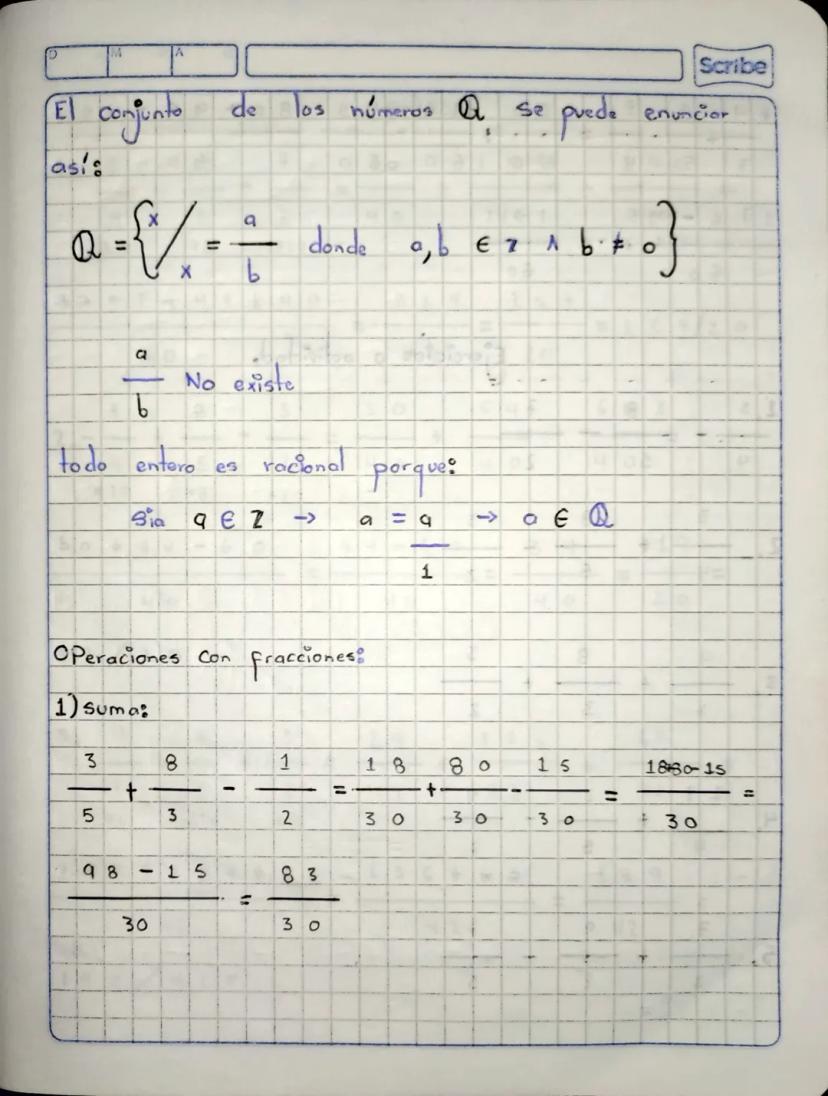 D M A
Scribe
El conjunto de los números ℚ se puede enunciar
así:
ℚ = {x/x = a/b donde a,b ∈ z ∧ b ≠ 0}
a/b No existe
todo entero es racional porque:
Sia a ∈ Z → a = a/1 → a ∈ ℚ
Operaciones con fracciones:
1) Suma:
3/5 + 8/3 - 1/2 = 18/30 + 80/30 - 15/30 = 18+80-15/30 =
98-15/30 = 83/30